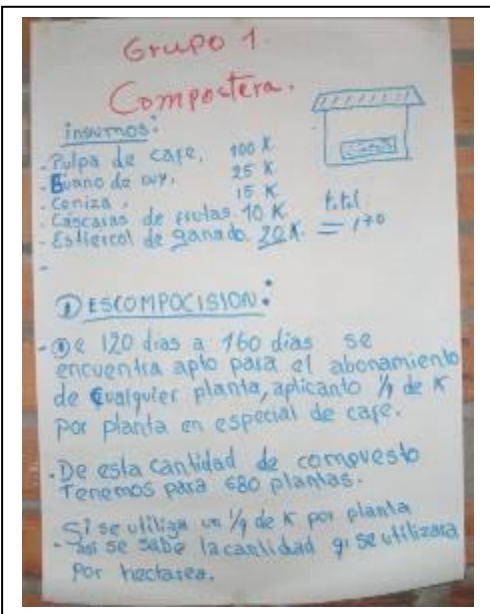 Grupo 1.
Compostera.
insumos:
- Pulpa de cafe, 100 K
- Guano de cuy, 25 K
- Ceniza, 15 K
- Cascaras de frutas 10 K
- Estiercol de ganado. 20 K. total = 170
-
DESCOMPOCISION:
- De 120 dias a 160 dias se
encuentra apto para el abonamiento
de cualquier planta, aplicanto 1/4 de K
por planta en especial de cafe.
- De esta cantidad de compuesto
Tenemos para 680 plantas.
Si se utiliza un 1/4 de k por planta
- asi se sabe la cantidad q' se utilizara
por hectarea.